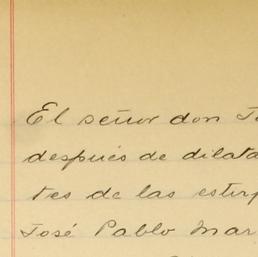 El señor don
después de dilata
tes de las estirp
José Pablo Mar